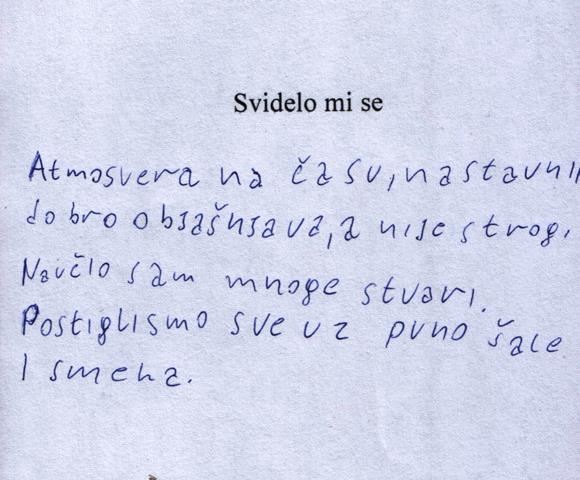 Svidelo mi se
Atmosvera na času, nastavnik
dobro objašnjava, a nije strog.
Naučio sam mnoge stvari.
Postigli smo sve uz puno šale
I smeha.